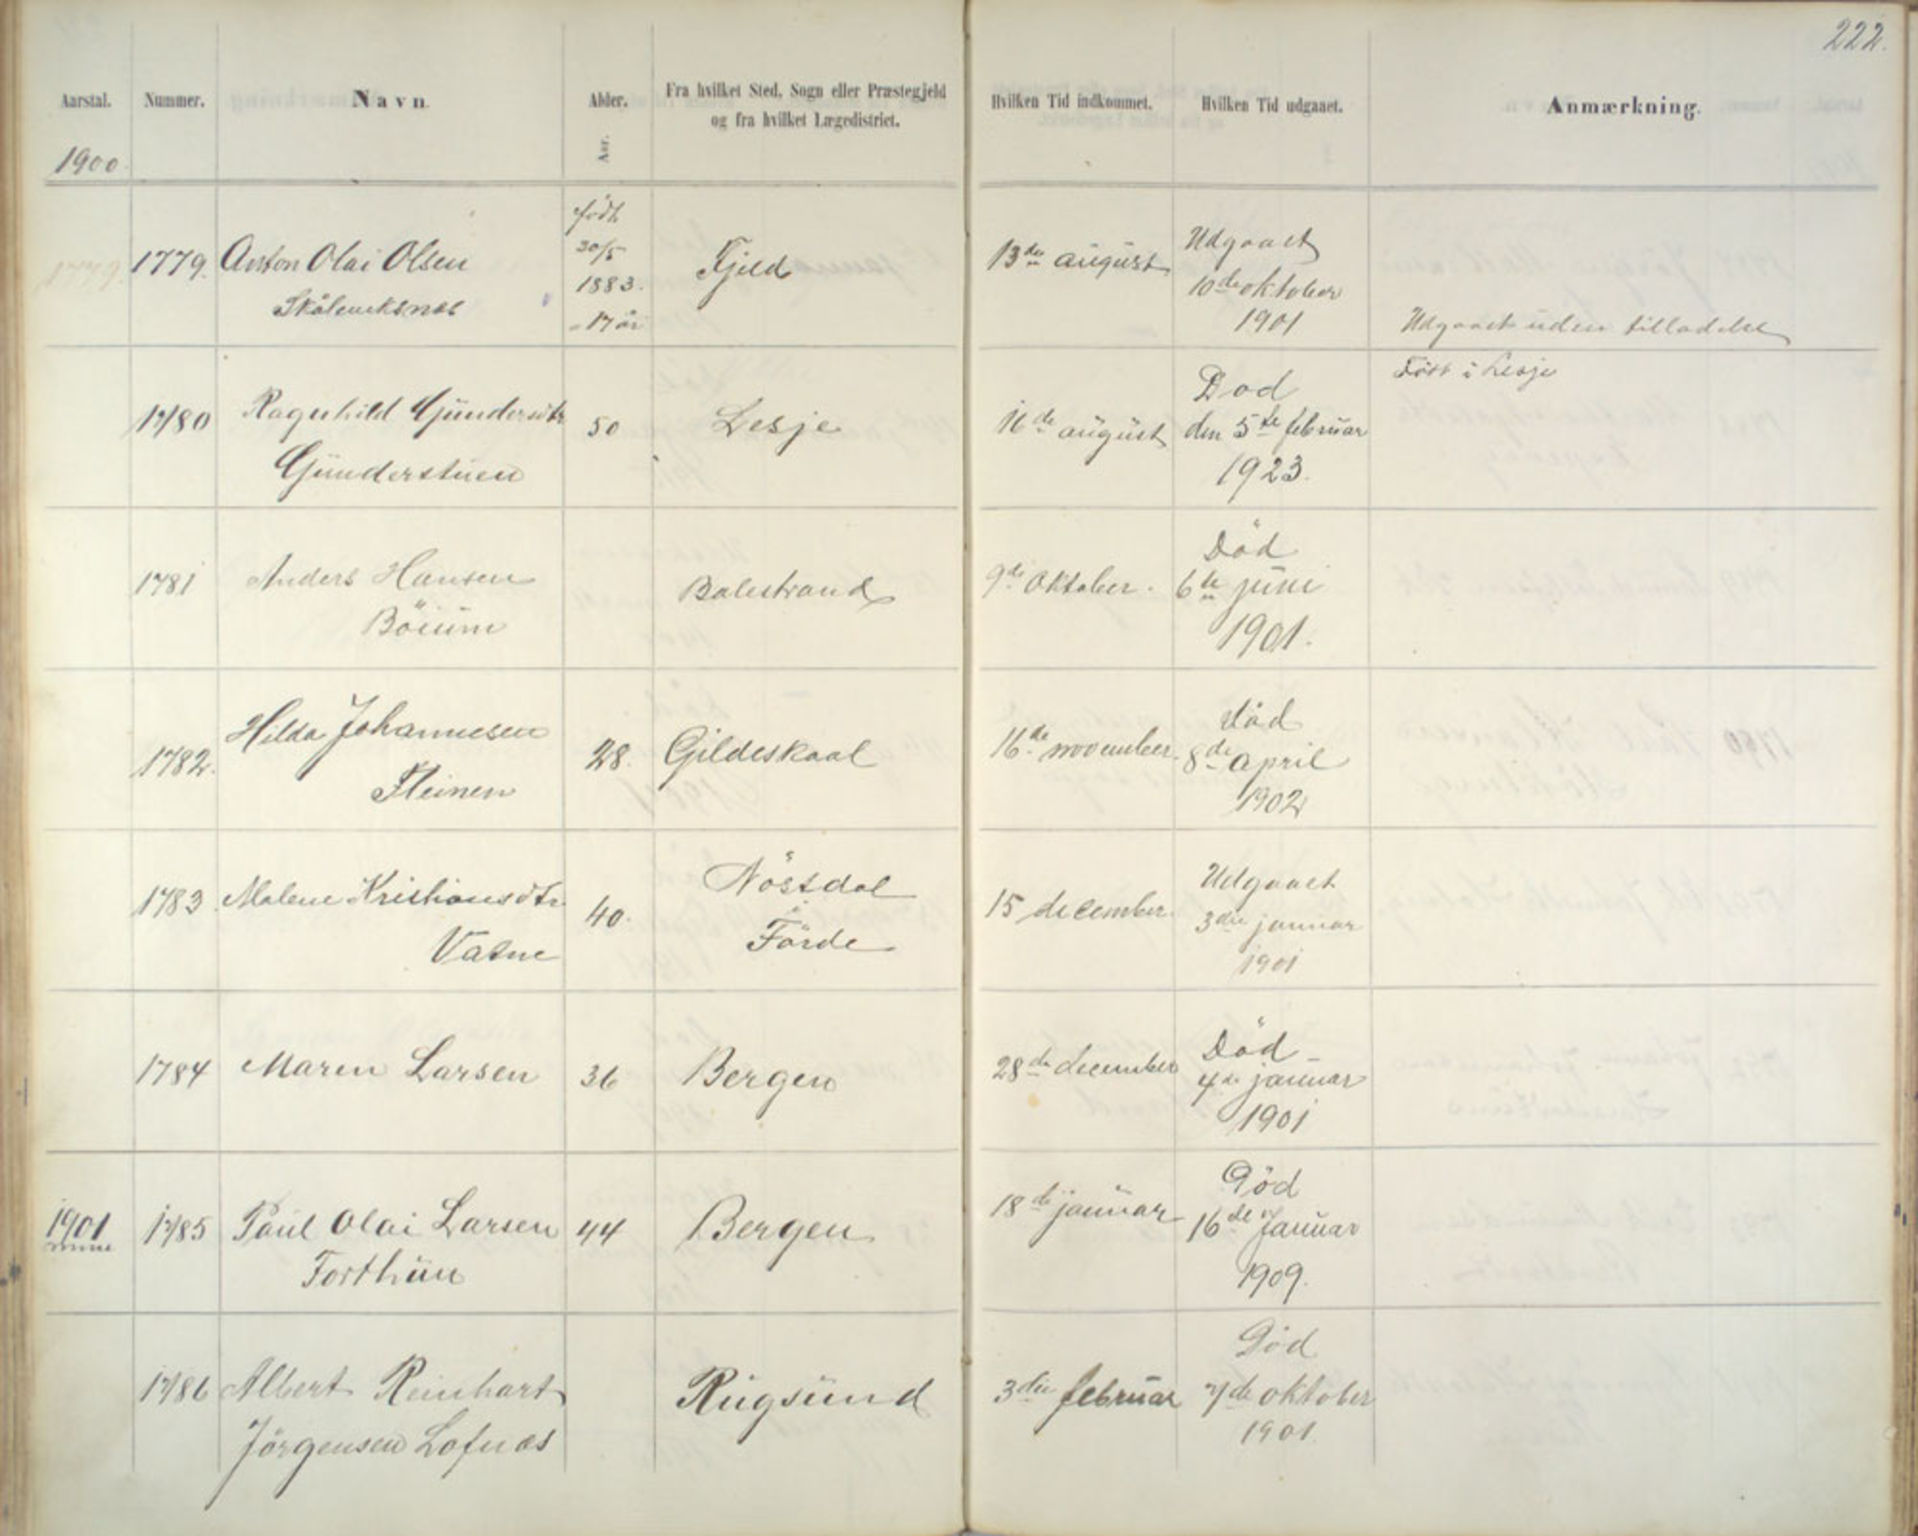 222.
Aarstal. Nummer. Navn. Alder. Fra hvilket Sted, Sogn eller Præstegjeld Hvilken Tid indkommet. Hvilken Tid udgaaet. Anmærkning.
og fra hvilket Lægedistrict.
Aar.
1900.
født
1779. Anton Olai Olsen 30/5 Fjeld 13de august Udgaaet
1883. 10de oktober
17 år 1901 Udgaaet uden tilladelse
Død Født i Lesje
1780 Ragnhild Gundersdtr 50 Lesje 16de august den 5te februar
Gunderstuen 1923.
Død
1781 Anders Hansen Balestrand 9de Oktober. 6te juni
Böium 1901.
død
1782. Hilda Johannesen 28. Gildeskaal 16de november. 8de april
Steinen 1902
Nöstdal Udgaaet
1783. Malene Kristiansdtr. 40. 15 december. 3die januar
Vatne Förde 1901
Död
1784 Maren Larsen 36 Bergen 28de december 4de januar
1901
Död
1901 1785 Paul Olai Larsen 44 Bergen 18de januar 16de Januar
Forthun 1909.
Död
1786 Albert Reinhart Rugsund 3die februar 7de oktober
Jörgensen Lofnæs 1901.